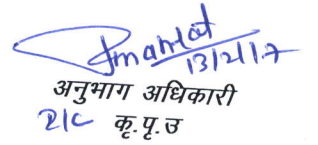 13/2/17
अनुभाग अधिकारी
R/C कृ.पृ.उ